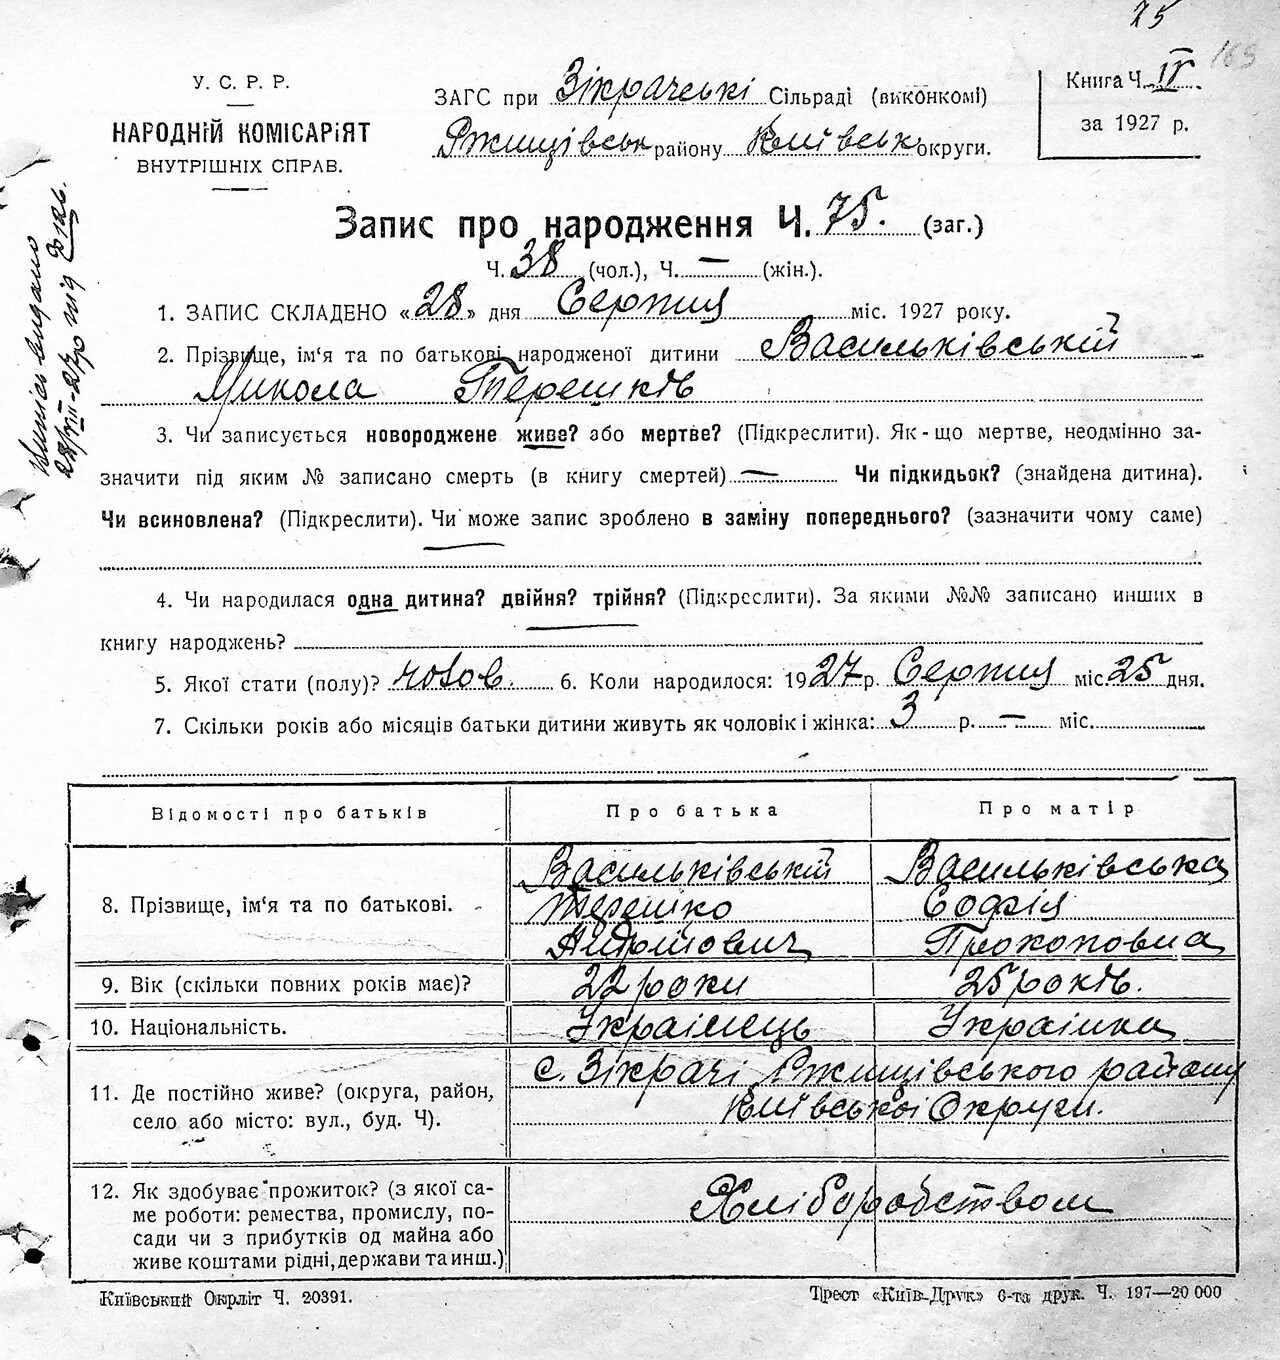 75
163
У. С. Р. Р.
НАРОДНІЙ КОМІСАРІЯТ
ВНУТРІШНІХ СПРАВ.
ЗАГС при Зікрачські Сільраді (виконкомі)
Ржищівськ району Київськ округи.
Книга Ч. IV
за 1927 р.
Запис про народження Ч. 75. (заг.)
Ч. 38 (чол.), Ч. — (жін.).
1. ЗАПИС СКЛАДЕНО «28» дня Серпня міс. 1927 року.
2. Прізвище, ім'я та по батькові народженої дитини Васильківський
Микола Терешків
3. Чи записується новороджене живе? або мертве? (Підкреслити). Як-що мертве, неодмінно за-
значити під яким № записано смерть (в книгу смертей) — Чи підкидьок? (знайдена дитина).
Чи всиновлена? (Підкреслити). Чи може запис зроблено в заміну попереднього? (зазначити чому саме)
4. Чи народилася одна дитина? двійня? трійня? (Підкреслити). За якими №№ записано инших в
книгу народжень?
5. Якої стати (полу)? чолов. 6. Коли народилося: 1927 р. Серпня міс. 25 дня.
7. Скільки років або місяців батьки дитини живуть як чоловік і жінка: 3 р. — міс.
Відомості про батьків Про батька Про матір
8. Прізвище, ім'я та по батькові.
Васильківський Васильківська
Терешко Софія
Андрійович Прокоповна
9. Вік (скільки повних років має)? 22 роки 25 років.
10. Національність. Українець Українка
11. Де постійно живе? (округа, район,
село або місто: вул., буд. Ч).
с. Зікрачі Ржищівського району
Київської Округи.
12. Як здобуває прожиток? (з якої са-
ме роботи: ремества, промислу, по-
сади чи з прибутків од майна або
живе коштами рідні, держави та инш.)
Хліборобством
Київський Окрліт Ч. 20391.
Трест «Київ-Друк» 6-та друк. Ч. 197—20 000
Випись видано
28/VIII-27 р під